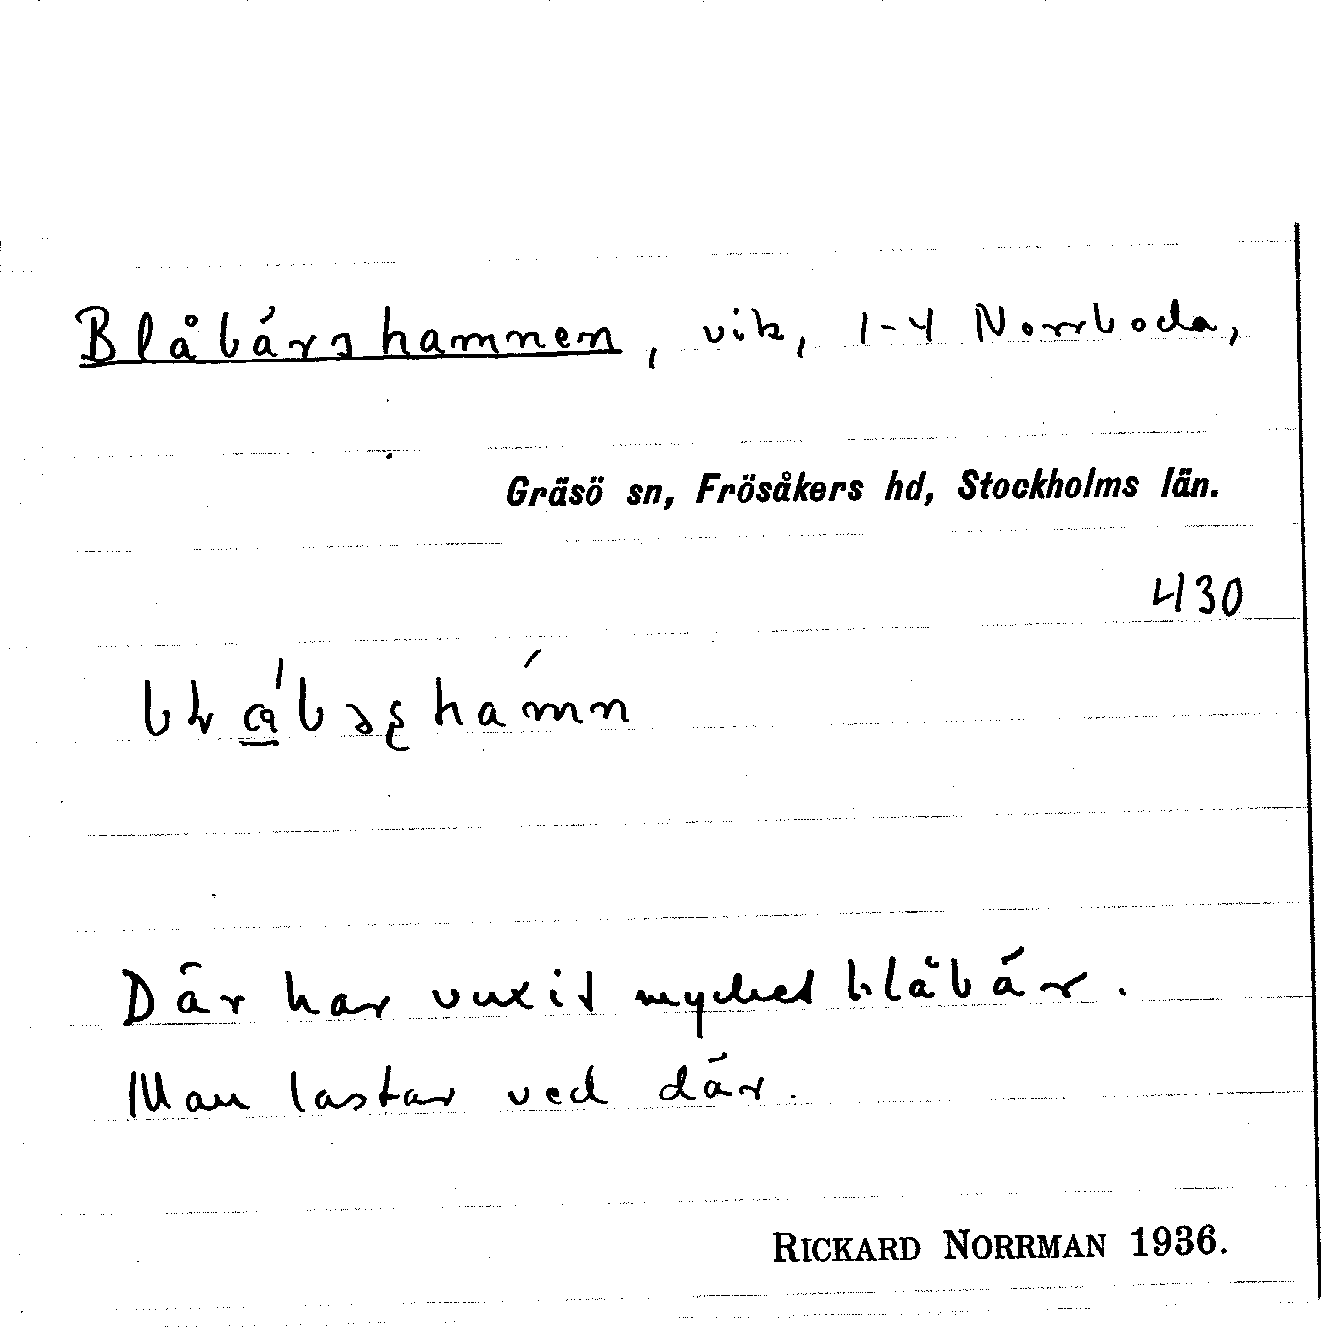 Blåbärshamnen, vik, 1-4 Norrboda,
Gräsö sn, Frösåkers hd, Stockholms län.
430
Där har vuxit mycket blåbär.
Man lastar ved där.
RICKARD NORRMAN 1936.